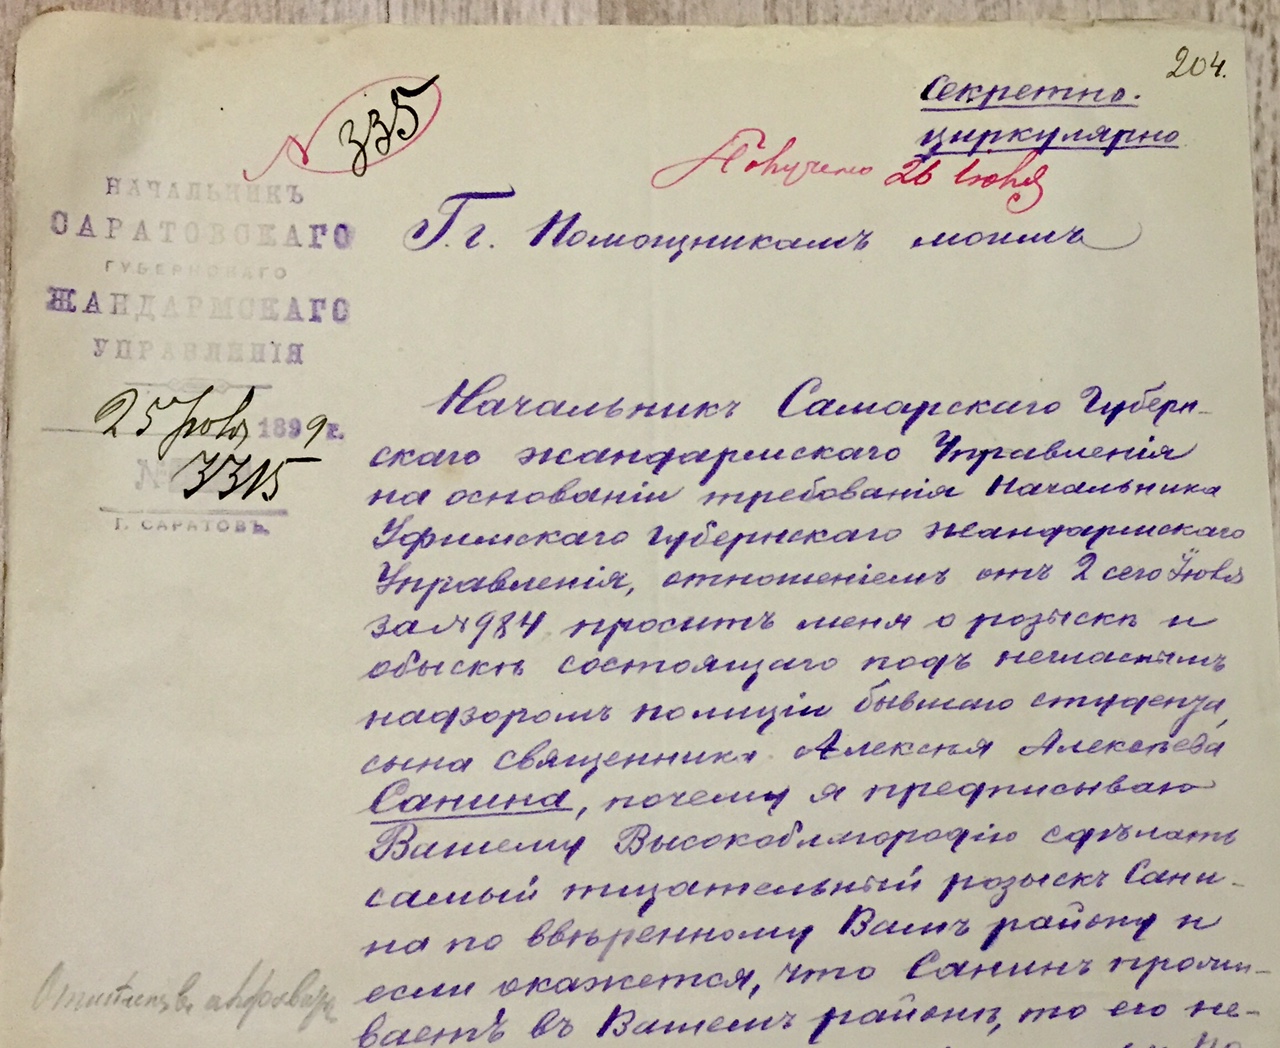 204.
335
Секретно.
циркулярно
Получено 26 Июня
НАЧАЛЬНИКЪ
САРАТОВСКАГО
ГУБЕРНСКАГО
ЖАНДАРМСКАГО
УПРАВЛЕНІЯ
25 1899 г.
№ 3315
Г. САРАТОВЪ.
Г.г. Помощникамъ моимъ
Начальникъ Самарскаго Губерн-
скаго жандармскаго Управленія
на основаніи требованія Начальника
Уфимскаго губернскаго жандармскаго
Управленія, отношеніемъ отъ 2 сего
за № 984 проситъ меня о розыскѣ и
обыскѣ состоящаго подъ негласнымъ
надзоромъ полиціи бывшаго студента,
сына священника Алексѣя Алексѣева
Санина, почему я предписываю
Вашему Высокоблагородію сдѣлать
самый тщательный розыскъ Сани-
на по ввѣренному Вамъ району и
если окажется, что Санинъ прожи-
ваетъ въ Вашемъ районѣ, то его не-